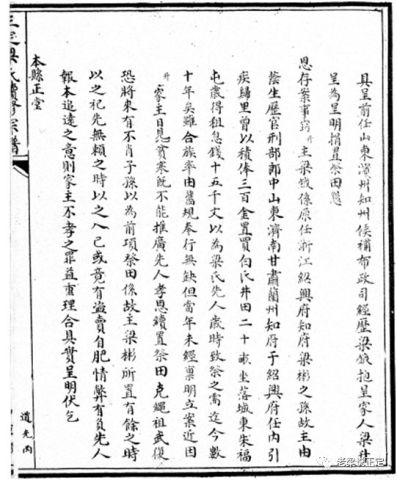 具呈前任山東濱州知州候補布政司經歷梁 抱呈家人梁
呈為呈明捐置祭田懇
恩存案事竊 主梁 係原任浙江紹興府知府梁彬之孫故主由
蔭生歷官刑部郎中山東濟南甘肅蘭州知府于紹興府任內引
疾歸里曾以積俸三百金置買向氏井田二十畝坐落城東朱福
屯歲得租息錢十五千文以為梁氏先人歲時致祭之需迄今數
十年矣雖合族率由舊規奉行無缺但當年未經稟明立案近因
家主日見貧寒既不能推廣先人孝思續置祭田克繩祖武復
恐將來有不肖子孫以為前項祭田係故主梁彬所置有餘之時
以之祀先無賴之時以之入己或竟有盜賣自肥情弊有負先人
報本追遠之意則家主不孝之罪益重理合具實呈明伏乞
本縣正堂
道光丙
梁氏續修宗譜
老梁說正定